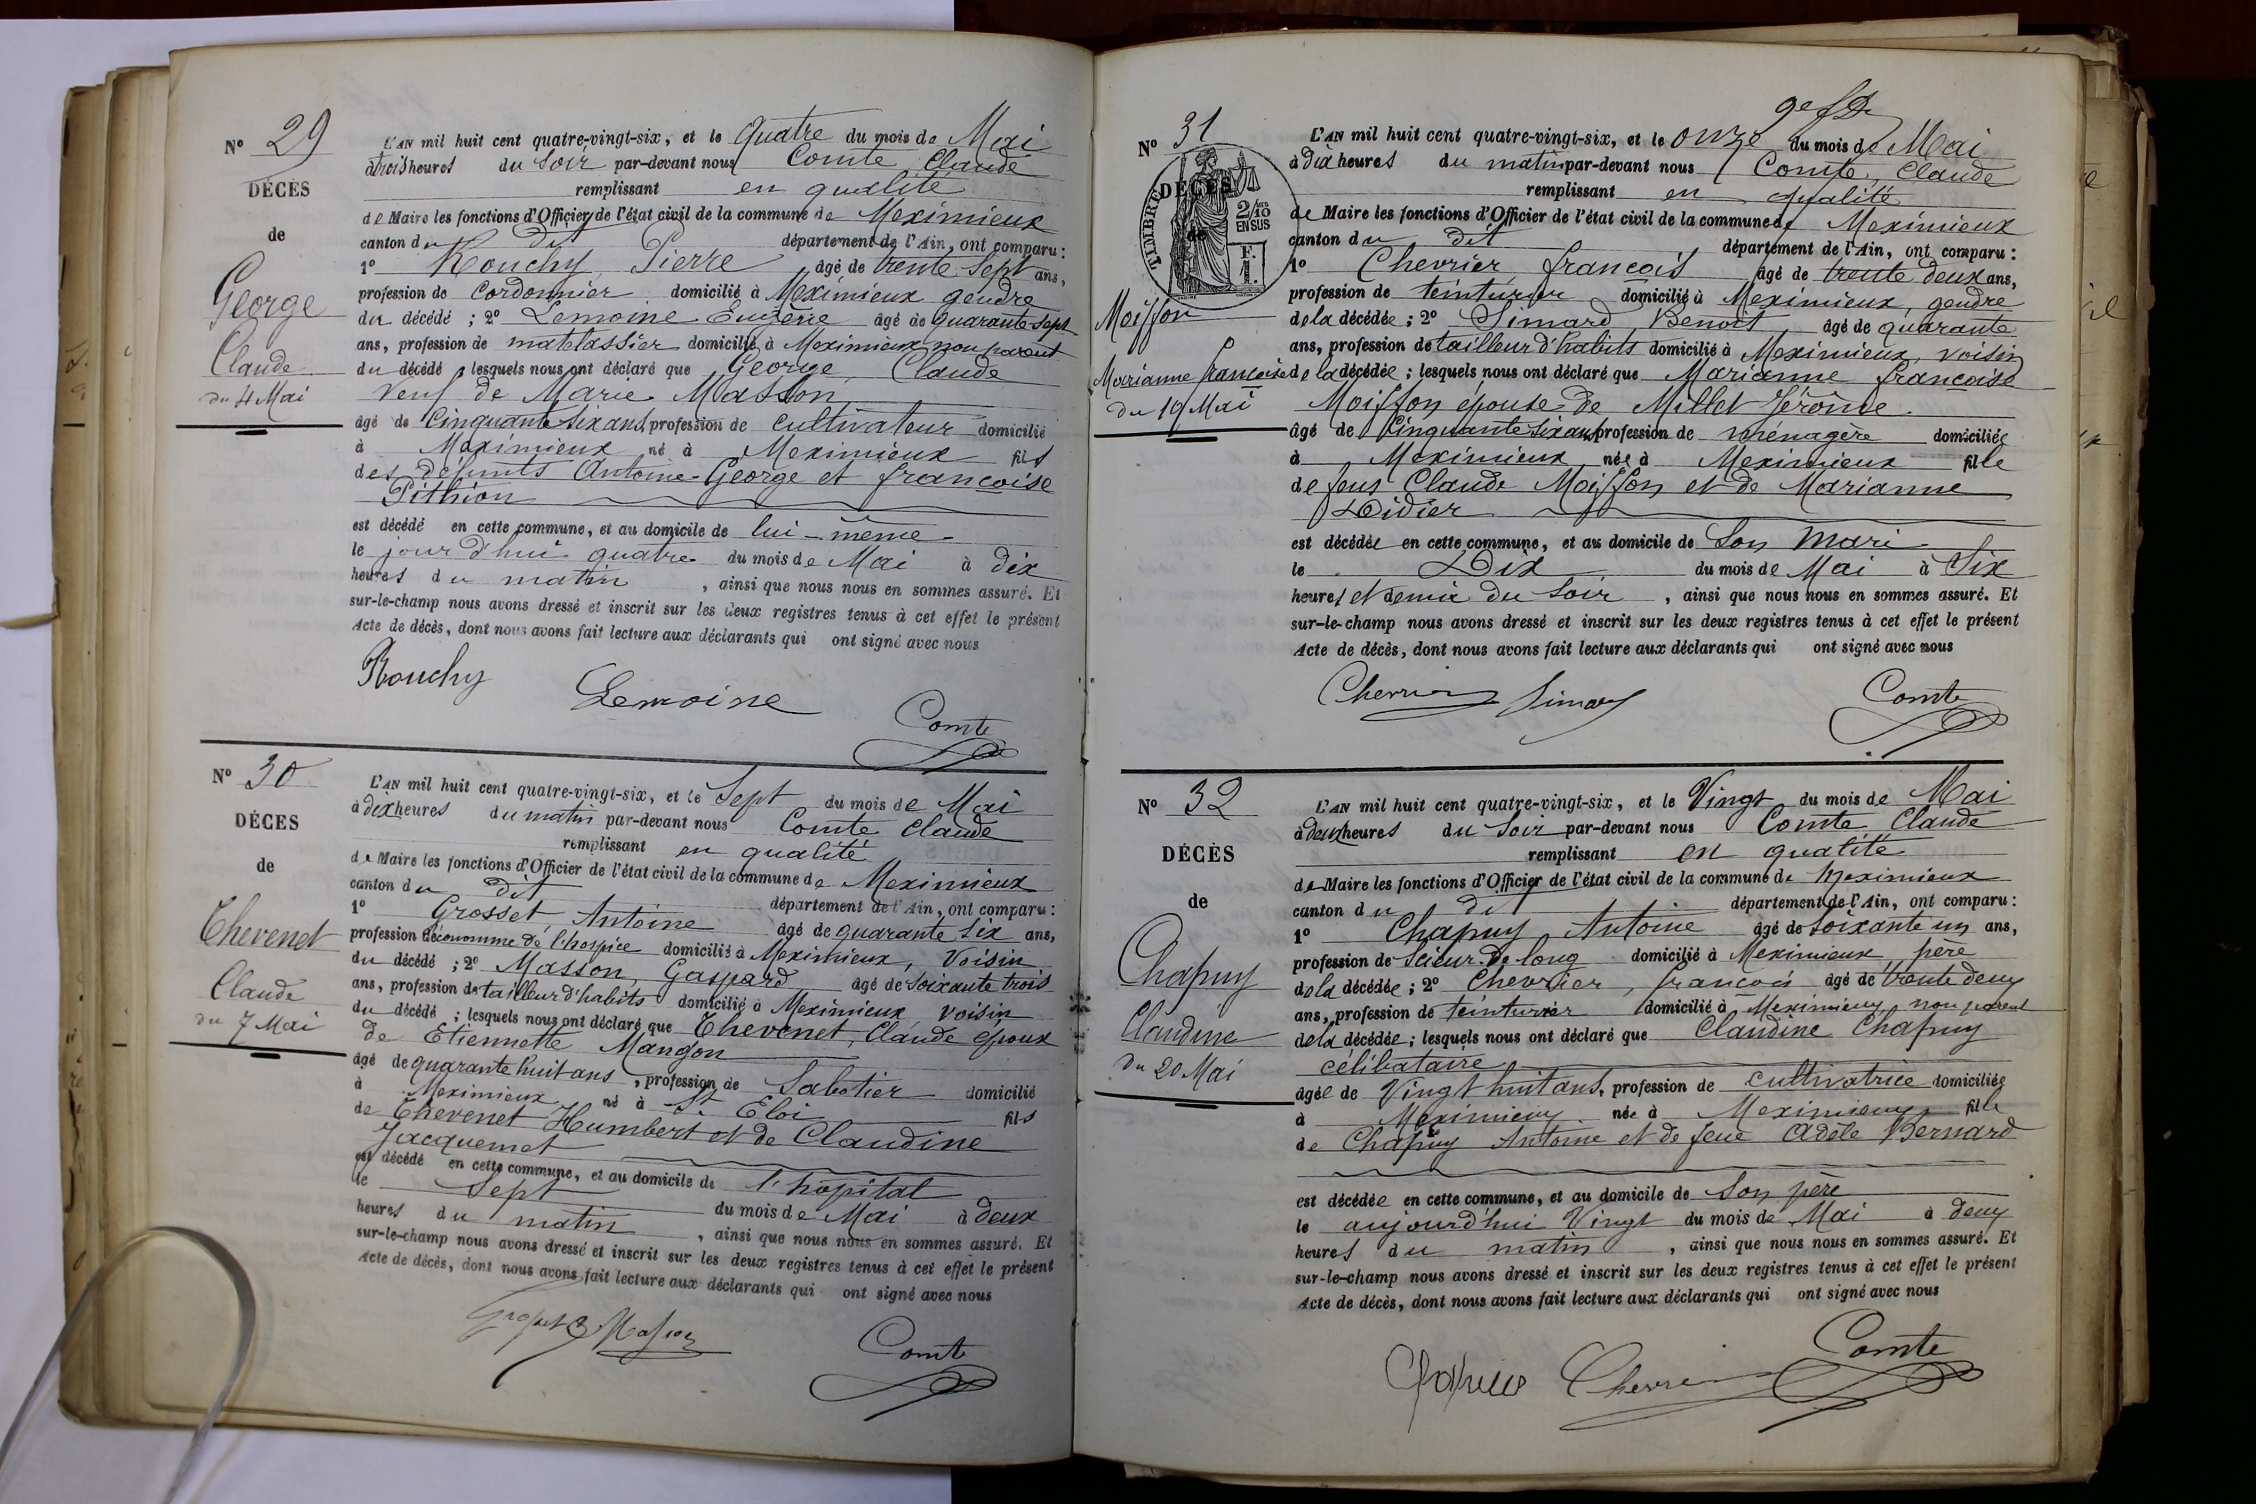 N° 29
DÉCÈS
de
George
Claude
du 4 Mai
L'AN mil huit cent quatre-vingt-six, et le Quatre du mois de Mai
à trois heures du Soir par-devant nous Comte Claude
remplissant en qualité
de Maire les fonctions d'Officier de l'état civil de la commune de Meximieux
canton du dit département de l'Ain, ont comparu :
1° Rouchy Pierre âgé de trente Sept ans,
profession de Cordonnier domicilié à Meximieux gendre
du décédé ; 2° Lemoine Eugène âgé de quarante-sept
ans, profession de matelassier domicilié à Meximieux non parent
du décédé ; lesquels nous ont déclaré que George, Claude
Veuf de Marie Masson
âgé de Cinquante Six ans, profession de cultivateur domicilié
à Meximieux né à Meximieux fils
des défunts Antoine George et françoise
Pithion
est décédé en cette commune, et au domicile de lui-même
le jour d'hui quatre du mois de Mai à dix
heures du matin, ainsi que nous nous en sommes assuré. Et
sur-le-champ nous avons dressé et inscrit sur les deux registres tenus à cet effet le présent
Acte de décès, dont nous avons fait lecture aux déclarants qui ont signé avec nous
Rouchy Lemoine Comte
N° 30
DÉCES
de
Thevenet
Claude
du 7 Mai
L'AN mil huit cent quatre-vingt-six, et le Sept du mois de Mai
à dix heures du matin par-devant nous Comte Claude
remplissant en qualité
de Maire les fonctions d'Officier de l'état civil de la commune de Meximieux
canton du Dit département de l'Ain, ont comparu :
1° Grosset, Antoine âgé de quarante Six ans,
profession d'économme de l'hospice domicilié à Meximieux, Voisin
du décédé ; 2° Masson, Gaspard âgé de Soixante trois
ans, profession de tailleur d'habits domicilié à Meximieux voisin
du décédé ; lesquels nous ont déclaré que Thevenet, Claude époux
de Etiennette Mangon
âgé de quarante huit ans, profession de Sabotier domicilié
à Meximieux né à St. Eloi fils
de Thevenet Humbert et de Claudine
Jacquemet
est décédé en cette commune, et au domicile de l'hôpital
le Sept du mois de Mai à deux
heures du matin, ainsi que nous nous en sommes assuré. Et
sur-le-champ nous avons dressé et inscrit sur les deux registres tenus à cet effet le présent
Acte de décès, dont nous avons fait lecture aux déclarants qui ont signé avec nous
Grosset Masson Comte
N° 31
DÉCÈS
de
TIMBRE
2/10 EN SUS
F. 1.
Moiffon
Marianne françoise
du 10 Mai
L'AN mil huit cent quatre-vingt-six, et le onze du mois de Mai
à Dix heures du matin par-devant nous Comte, Claude
remplissant en qualité
de Maire les fonctions d'Officier de l'état civil de la commune de Meximieux
canton du dit département de l'Ain, ont comparu :
1° Chevrier, françois âgé de trente deux ans,
profession de teinturier domicilié à Meximieux, gendre
de la décédée ; 2° Simard Benoit, âgé de quarante
ans, profession de tailleur d'habits domicilié à Meximieux, voisin
de la décédée ; lesquels nous ont déclaré que Marianne françoise
Moiffon épouse de Millet Jérôme
âgé de Cinquante Six ans profession de ménagère domiciliée
à Meximieux née à Meximieux fille
de feus Claude Moiffon et de Marianne
Didier
est décédée en cette commune, et au domicile de Son Mari
le Dix du mois de Mai à Six
heures et demie du Soir, ainsi que nous nous en sommes assuré. Et
sur-le-champ nous avons dressé et inscrit sur les deux registres tenus à cet effet le présent
Acte de décès, dont nous avons fait lecture aux déclarants qui ont signé avec nous
Chevrier Simard Comte
N° 32
DÉCÈS
de
Chapuy
Claudine
du 20 Mai
L'AN mil huit cent quatre-vingt-six, et le Vingt du mois de Mai
à deux heures du Soir par-devant nous Comte Claude
remplissant en qualité
de Maire les fonctions d'Officier de l'état civil de la commune de Meximieux
canton du dit département de l'Ain, ont comparu :
1° Chapuy Antoine âgé de Soixante un ans,
profession de Scieur de long domicilié à Meximieux père
de la décédée ; 2° Chevrier, françois âgé de trente deux
ans, profession de teinturier domicilié à Meximieux non parent
de la décédée ; lesquels nous ont déclaré que Claudine Chapuy
célibataire
âgée de Vingt huit ans, profession de cultivatrice domiciliée
à Meximieux née à Meximieux fille
de Chapuy Antoine et de feue Adèle Bernard
est décédée en cette commune, et au domicile de Son père
le aujourd'hui Vingt du mois de Mai à deux
heures du matin, ainsi que nous nous en sommes assuré. Et
sur-le-champ nous avons dressé et inscrit sur les deux registres tenus à cet effet le présent
Acte de décès, dont nous avons fait lecture aux déclarants qui ont signé avec nous
Chapuis Chevrier Comte